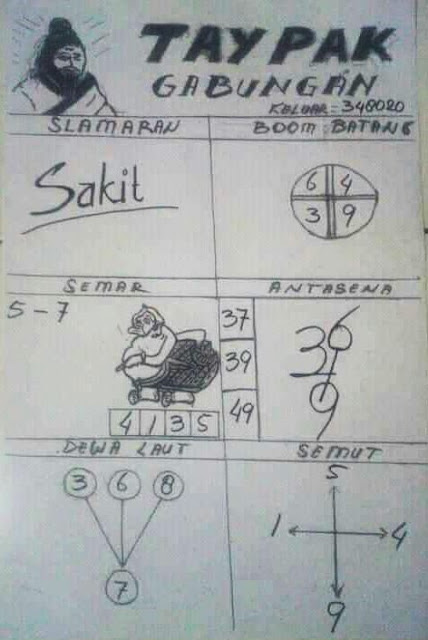 TAYPAK
GABUNGAN
KELUAR = 348020
SLAMARAN
BOOM BATANG
Sakit
6 4
3 9
SEMAR
ANTASENA
5 - 7
37
39
49
4 1 3 5
36
9
DEWA LAUT
SEMUT
3 6 8
7
5
1 4
9